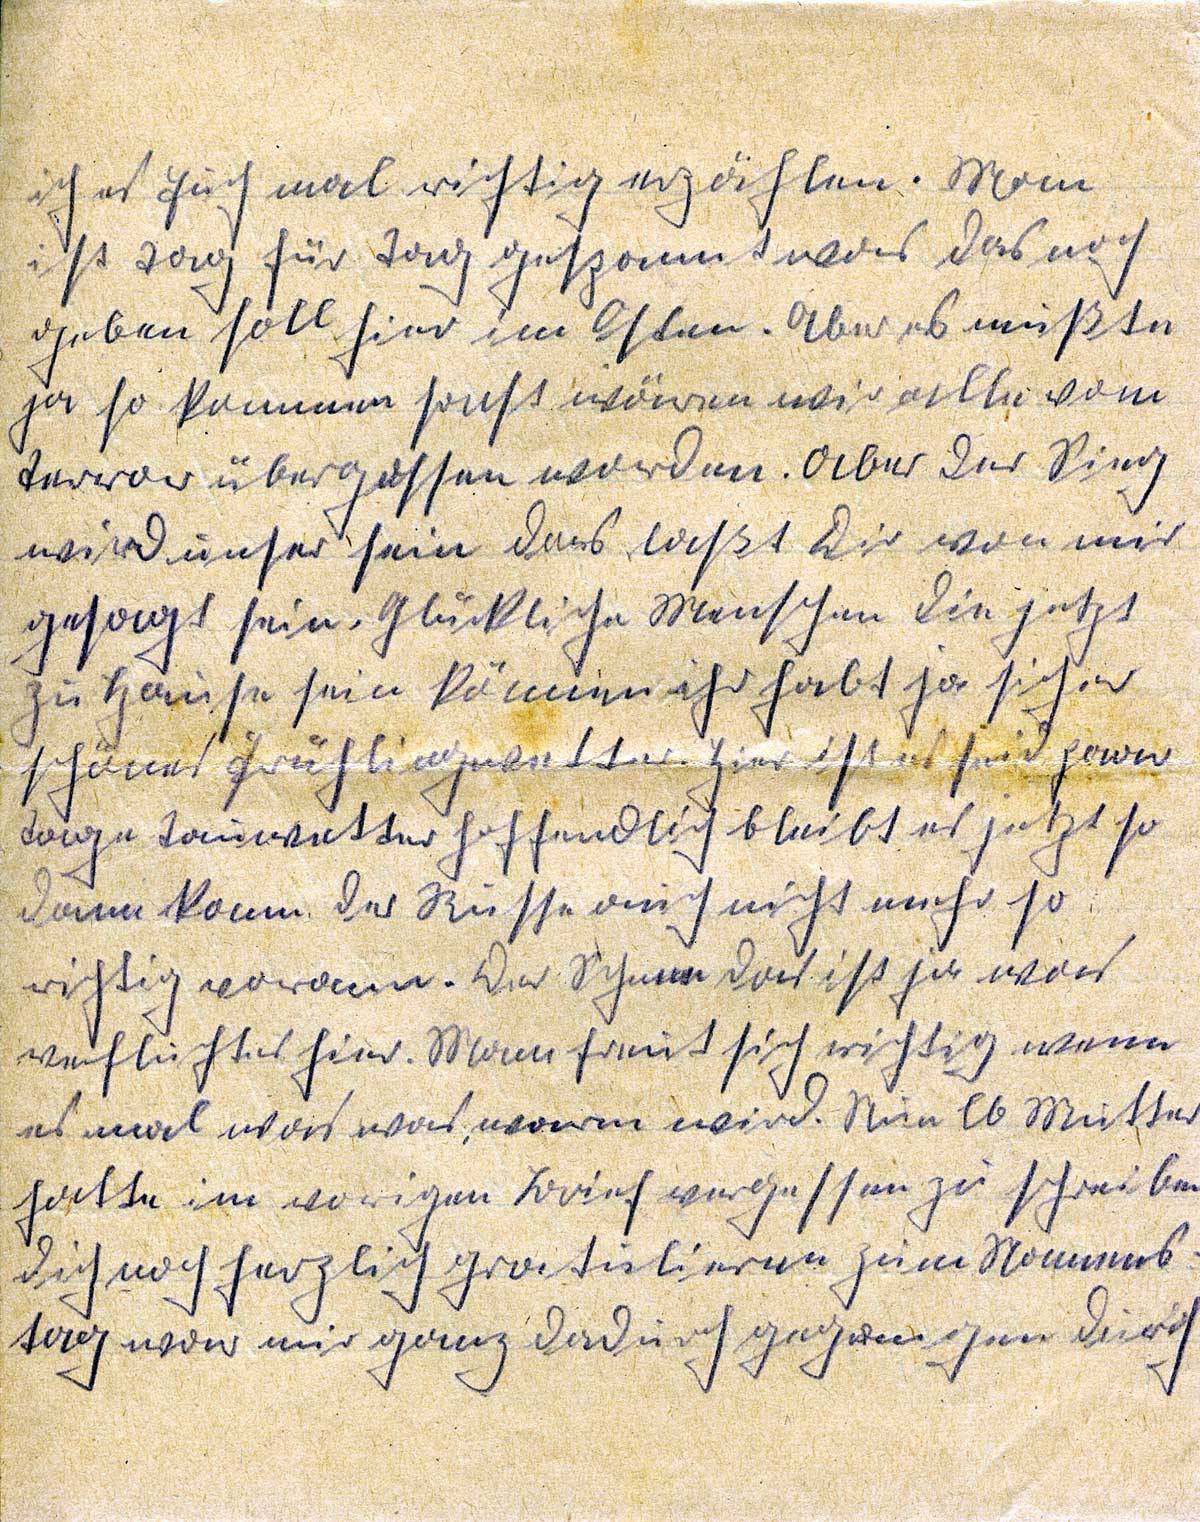 ich es Euch mal richtig erzählen. Man
ist Tag für Tag gespannt was das noch
geben soll hier im Osten. Aber es mußte
ja so kommen sonst wären wir alle vom
Terror übergossen worden. Aber der Sieg
wird unser sein das laßt Dir von mir
gesagt sein. Glückliche Menschen die jetzt
zu Hause sein können ihr habt ja sicher
schönes Frühlingwetter. Hier ist es seid paar
Tage Tauwetter hoffendlich bleibt es jetzt so
dann kann der Russe auch nicht mehr so
richtig vorann. Der Schnee das ist ja was
verfluchtes hier. Mann freut sich richtig wenn
es mal was was, warm wird. Nun lb Mutter
hatte im vorigen Brief vergessen zu schreiben
Dich noch herzlich gratulieren zum Namens=
tag war mir ganz dadurch gegangen durch